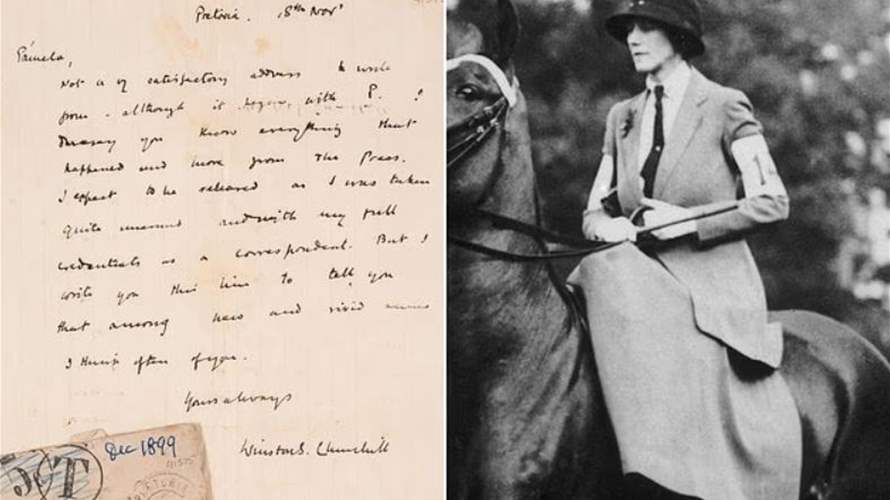 Pretoria. 18th Nov
Pamela,
Not a vy satisfactory address to write
from - although it begins with P.
Daresay you know everything that
happened and more from the Press.
I expect to be released as I was taken
quite unarmed and with my full
credentials as a correspondent. But I
write you this line to tell you
that among new and vivid scenes
I think often of you.
Yours always
Winston S. Churchill
Dec 1899
T
1